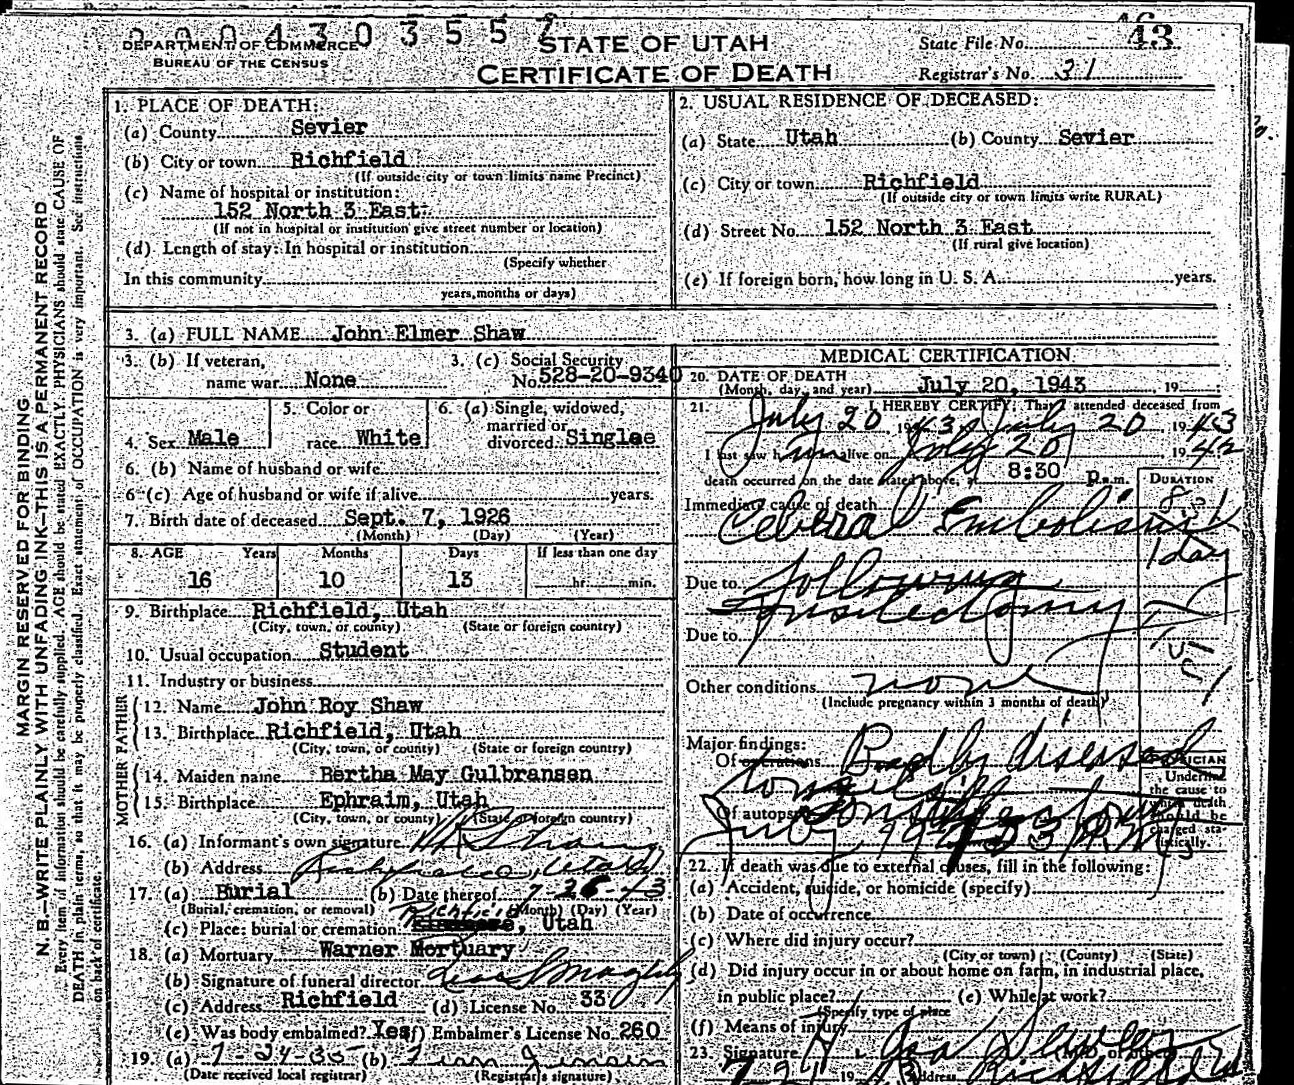 2 0 0 4 3 0 3 5 5 7
DEPARTMENT OF COMMERCE
BUREAU OF THE CENSUS
STATE OF UTAH
CERTIFICATE OF DEATH
State File No. 43
Registrar's No. 31
MARGIN RESERVED FOR BINDING
N. B.—WRITE PLAINLY WITH UNFADING INK—THIS IS A PERMANENT RECORD
Every item of information should be carefully supplied. AGE should be stated EXACTLY. PHYSICIANS should state CAUSE OF
DEATH in plain terms, so that it may be properly classified. Exact statement of OCCUPATION is very important. See instructions
on back of certificate.
1. PLACE OF DEATH:
(a) County Sevier
(b) City or town Richfield
(If outside city or town limits name Precinct)
(c) Name of hospital or institution:
152 North 3 East
(If not in hospital or institution give street number or location)
(d) Length of stay: In hospital or institution
(Specify whether
In this community
years, months or days)
2. USUAL RESIDENCE OF DECEASED:
(a) State Utah (b) County Sevier
(c) City or town Richfield
(If outside city or town limits write RURAL)
(d) Street No. 152 North 3 East
(If rural give location)
(e) If foreign born, how long in U. S. A. years.
3. (a) FULL NAME John Elmer Shaw
3. (b) If veteran,
name war None
3. (c) Social Security
No. 528-20-9340
4. Sex Male
5. Color or
race White
6. (a) Single, widowed,
married or
divorced Singlee
6. (b) Name of husband or wife
6 (c) Age of husband or wife if alive years.
7. Birth date of deceased Sept. 7, 1926
(Month) (Day) (Year)
8. AGE Years Months Days If less than one day
16 10 13 hr. min.
9. Birthplace Richfield, Utah
(City, town, or county) (State or foreign country)
10. Usual occupation Student
11. Industry or business
FATHER
12. Name John Roy Shaw
13. Birthplace Richfield, Utah
(City, town, or county) (State or foreign country)
MOTHER
14. Maiden name Bertha May Gulbransen
15. Birthplace Ephraim, Utah
(City, town, or county) (State or foreign country)
16. (a) Informant's own signature
(b) Address Richfield, Utah
17. (a) Burial (b) Date thereof 7-26-43
(Burial, cremation, or removal) (Month) (Day) (Year)
(c) Place: burial or cremation Richfield, Utah
18. (a) Mortuary Warner Mortuary
(b) Signature of funeral director
(c) Address Richfield (d) License No. 33
(e) Was body embalmed? Yes (f) Embalmer's License No. 260
19. (a) (b)
(Date received local registrar) (Registrar's signature)
MEDICAL CERTIFICATION
20. DATE OF DEATH
(Month, day, and year) July 20, 1943 19
21. I HEREBY CERTIFY, That I attended deceased from
July 20 1943 July 20 1943
I last saw him alive on July 20 19
death occurred on the date stated above, at 8:30 p.m.
DURATION
Immediate cause of death
Cebera l Embolism
1 day
Due to following
Due to
Other conditions none
(Include pregnancy within 3 months of death)
Major findings:
Of operations Badly diseased
tonsils
Of autopsy
PHYSICIAN
Underline
the cause to
which death
should be
charged sta-
tistically.
22. If death was due to external causes, fill in the following:
(a) Accident, suicide, or homicide (specify)
(b) Date of occurrence
(c) Where did injury occur?
(City or town) (County) (State)
(d) Did injury occur in or about home on farm, in industrial place,
in public place? (e) While at work?
(Specify type of place
(f) Means of injury
23. Signature (M.D. or other)
19 Address Richfield